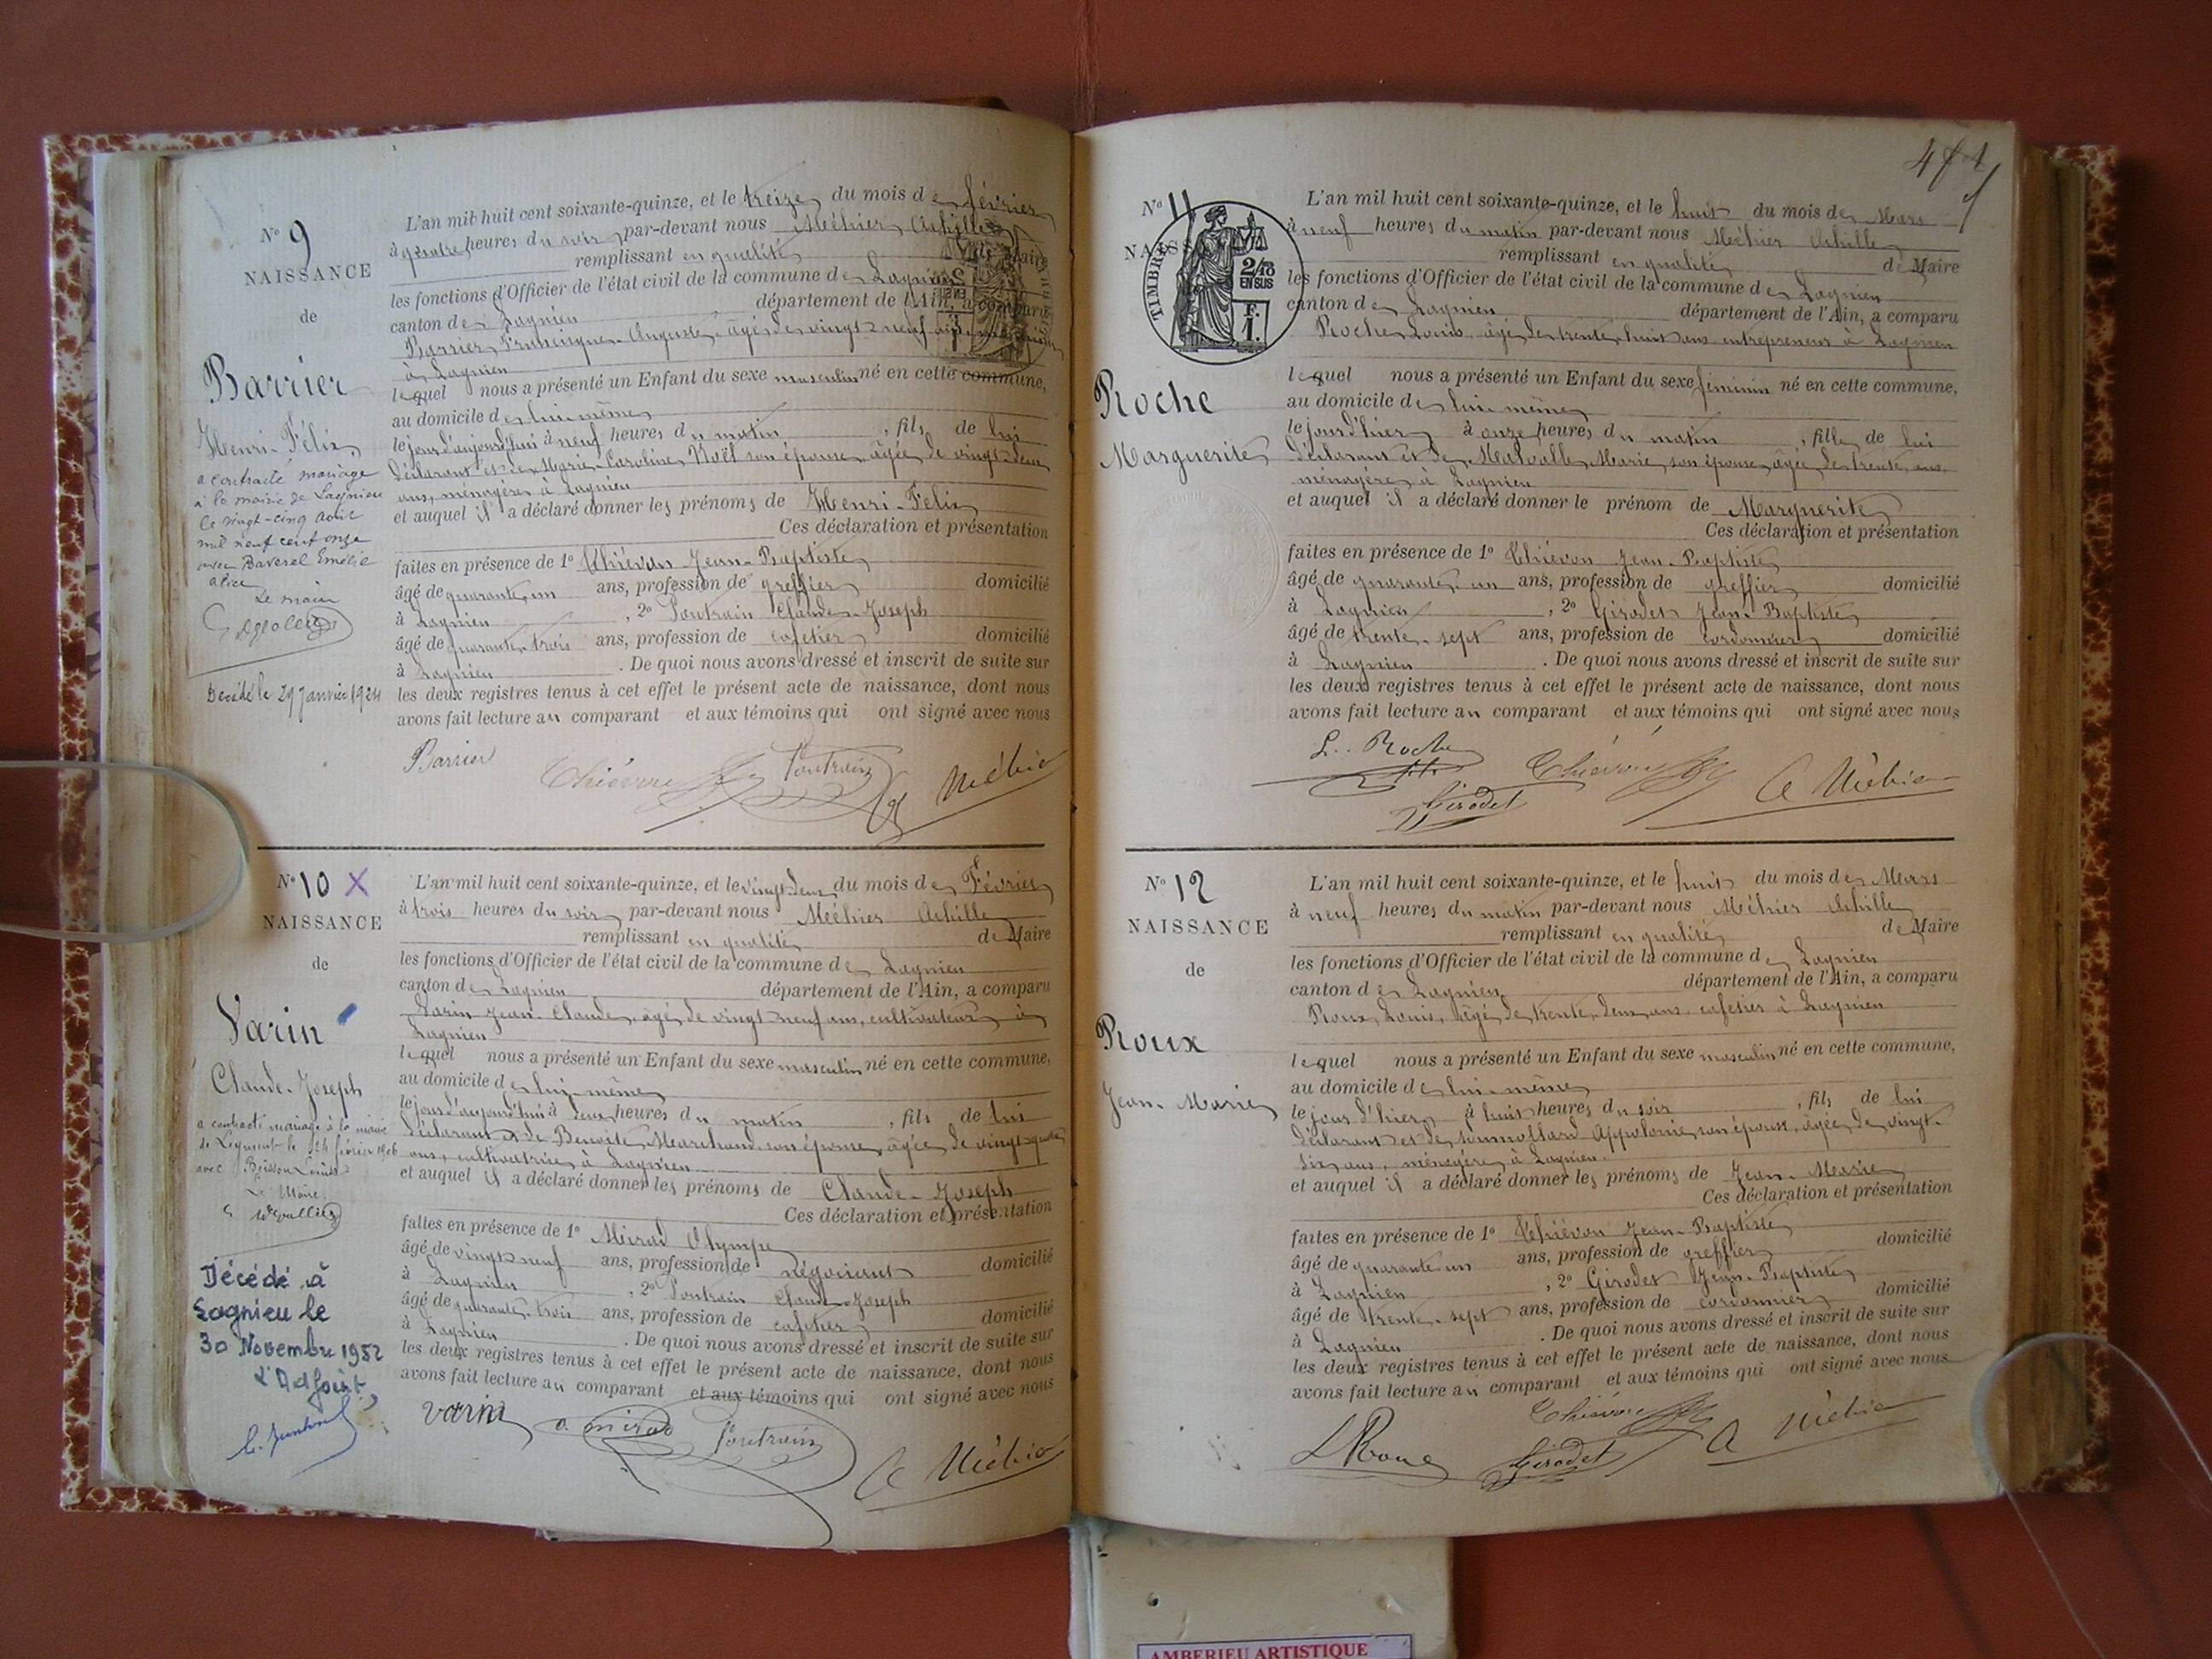 N° 9
NAISSANCE
de
Barrier
Henri-Félix
a contracté mariage
à la mairie de Lagnieu
le vingt-cinq août
mil neuf cent onze
avec Baverel Emélie
Alice
Le maire
Décédé le 29 janvier 1924
L'an mil huit cent soixante-quinze, et le treize du mois de février
à quatre heures du soir par-devant nous Méhier Achille
remplissant en qualité de Maire
les fonctions d'Officier de l'état civil de la commune de Lagnieu
canton de Lagnieu département de l'Ain, a comparu
Barrier Francisque-Auguste, âgé de vingt-neuf ans
à Lagnieu
lequel nous a présenté un Enfant du sexe masculin né en cette commune,
au domicile de lui-même
le jour d'aujourd'hui à neuf heures du matin, fils de lui
déclarant et de Marie-Caroline Noël son épouse, âgée de vingt-deux
ans, ménagère à Lagnieu
et auquel il a déclaré donner les prénoms de Henri-Félix
Ces déclaration et présentation
faites en présence de 1° Thiévon Jean-Baptiste
âgé de quarante-un ans, profession de greffier domicilié
à Lagnieu, 2° Poutrain Claude-Joseph
âgé de quarante-trois ans, profession de cafetier domicilié
à Lagnieu. De quoi nous avons dressé et inscrit de suite sur
les deux registres tenus à cet effet le présent acte de naissance, dont nous
avons fait lecture au comparant et aux témoins qui ont signé avec nous
Barrier Poutrain Méhier
N° 10 X
NAISSANCE
de
Varin
Claude-Joseph
a contracté mariage à la mairie
de février 1906
avec Louise
Le Maire
Décédé à
Lagnieu le
30 Novembre 1952
L'Adjoint,
L'an mil huit cent soixante-quinze, et le vingt-deux du mois de Février
à trois heures du soir par-devant nous Méhier Achille
remplissant en qualité de Maire
les fonctions d'Officier de l'état civil de la commune de Lagnieu
canton de Lagnieu département de l'Ain, a comparu
Varin Jean-Claude, âgé de vingt-neuf ans, cultivateur à
Lagnieu
lequel nous a présenté un Enfant du sexe masculin né en cette commune,
au domicile de lui-même
le jour d'aujourd'hui à deux heures du matin, fils de lui
déclarant et de Benoîte Marchand son épouse, âgée de vingt-quatre
ans, cultivatrice à Lagnieu
et auquel il a déclaré donner les prénoms de Claude-Joseph
Ces déclaration et présentation
faites en présence de 1° Mirad Olympe
âgé de vingt-neuf ans, profession de négociant domicilié
à Lagnieu, 2° Poutrain Claude-Joseph
âgé de quarante-trois ans, profession de cafetier domicilié
à Lagnieu. De quoi nous avons dressé et inscrit de suite sur
les deux registres tenus à cet effet le présent acte de naissance, dont nous
avons fait lecture au comparant et aux témoins qui ont signé avec nous
varin o. mirad Poutrain A Méhier
471
N° 11
NAISS
TIMBRE
2/10
EN SUS
F.
1.
Roche
Marguerite
L'an mil huit cent soixante-quinze, et le huit du mois de Mars
à neuf heures du matin par-devant nous Méhier Achille
remplissant en qualité de Maire
les fonctions d'Officier de l'état civil de la commune de Lagnieu
canton de Lagnieu département de l'Ain, a comparu
Roche Louis, âgé de trente-huit ans entrepreneur à Lagnieu
lequel nous a présenté un Enfant du sexe féminin né en cette commune,
au domicile de lui-même
le jour d'hier à onze heures du matin, fille de lui
déclarant et de Matvalle Marie, son épouse, âgée de trente ans,
ménagère à Lagnieu
et auquel il a déclaré donner le prénom de Marguerite
Ces déclaration et présentation
faites en présence de 1° Thiévon Jean-Baptiste
âgé de quarante-un ans, profession de greffier domicilié
à Lagnieu, 2° Girodet Jean-Baptiste
âgé de trente-sept ans, profession de cordonnier domicilié
à Lagnieu. De quoi nous avons dressé et inscrit de suite sur
les deux registres tenus à cet effet le présent acte de naissance, dont nous
avons fait lecture au comparant et aux témoins qui ont signé avec nous
L. Roche
Girodet A Méhier
N° 12
NAISSANCE
de
Roux
Jean-Marie
L'an mil huit cent soixante-quinze, et le huit du mois de Mars
à neuf heures du matin par-devant nous Méhier Achille
remplissant en qualité de Maire
les fonctions d'Officier de l'état civil de la commune de Lagnieu
canton de Lagnieu département de l'Ain, a comparu
Roux Louis, âgé de trente-deux ans cafetier à Lagnieu
lequel nous a présenté un Enfant du sexe masculin né en cette commune,
au domicile de lui-même
le jour d'hier à huit heures du soir, fils de lui
déclarant et de Appolonie, son épouse, âgée de vingt-
six ans, ménagère à Lagnieu
et auquel il a déclaré donner les prénoms de Jean-Marie
Ces déclaration et présentation
faites en présence de 1° Thiévon Jean-Baptiste
âgé de quarante-un ans, profession de greffier domicilié
à Lagnieu, 2° Girodet Jean-Baptiste
âgé de trente-sept ans, profession de cordonnier domicilié
à Lagnieu. De quoi nous avons dressé et inscrit de suite sur
les deux registres tenus à cet effet le présent acte de naissance, dont nous
avons fait lecture au comparant et aux témoins qui ont signé avec nous
L Roux Girodet A Méhier
AMBERIEU ARTISTIQUE